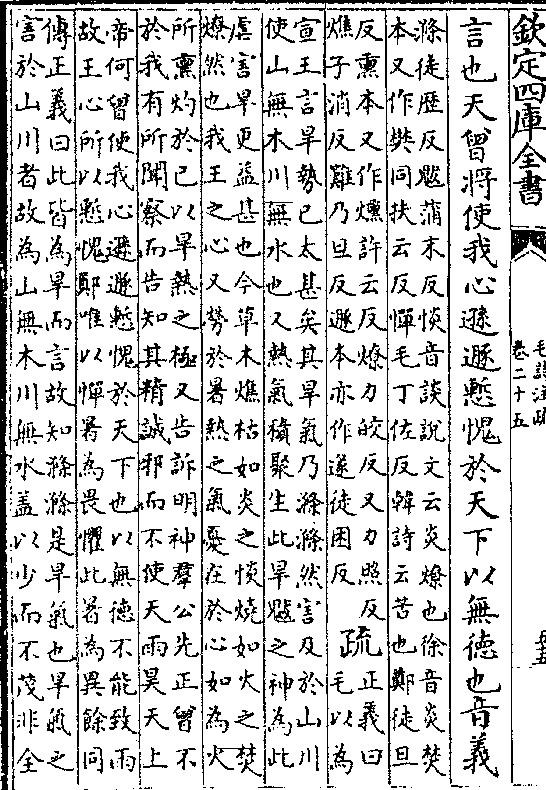 欽定四庫全書
毛詩注疏
卷二十五
言也天曾將使我心遜遯慙愧於天下以無德也音義
滌徒歴反魃蒲末反惔音談說文云炎燎也徐音炎焚
本又作樊同扶云反憚毛丁佐反韓詩云苦也鄭徒旦
反熏本又作燻許云反燎力皎反又力照反
燋子消反難乃旦反遯本亦作遂徒困反
疏
正義曰
毛以為
宣王言旱勢已太甚矣其旱氣乃滌滌然害及於山川
使山無木川無水也又熱氣積聚生此旱魃之神為此
虐害旱更益甚也今草木燋枯如炎之惔燒如火之焚
燎然也我王之心又勞於暑熱之氣憂在於心如為火
所熏灼於己以旱熱之極又告訴明神羣公先正曾不
於我有所聞察而告知其精誠邪而不使天雨昊天上
帝何曾使我心遜遯慙愧於天下也以無德不能致雨
故王心所以慙愧鄭唯以憚暑為畏懼此暑為異餘同
傳正義曰此皆為旱而言故知滌滌是旱氣也旱氣之
害於山川者故為山無木川無水蓋以少而不茂非全